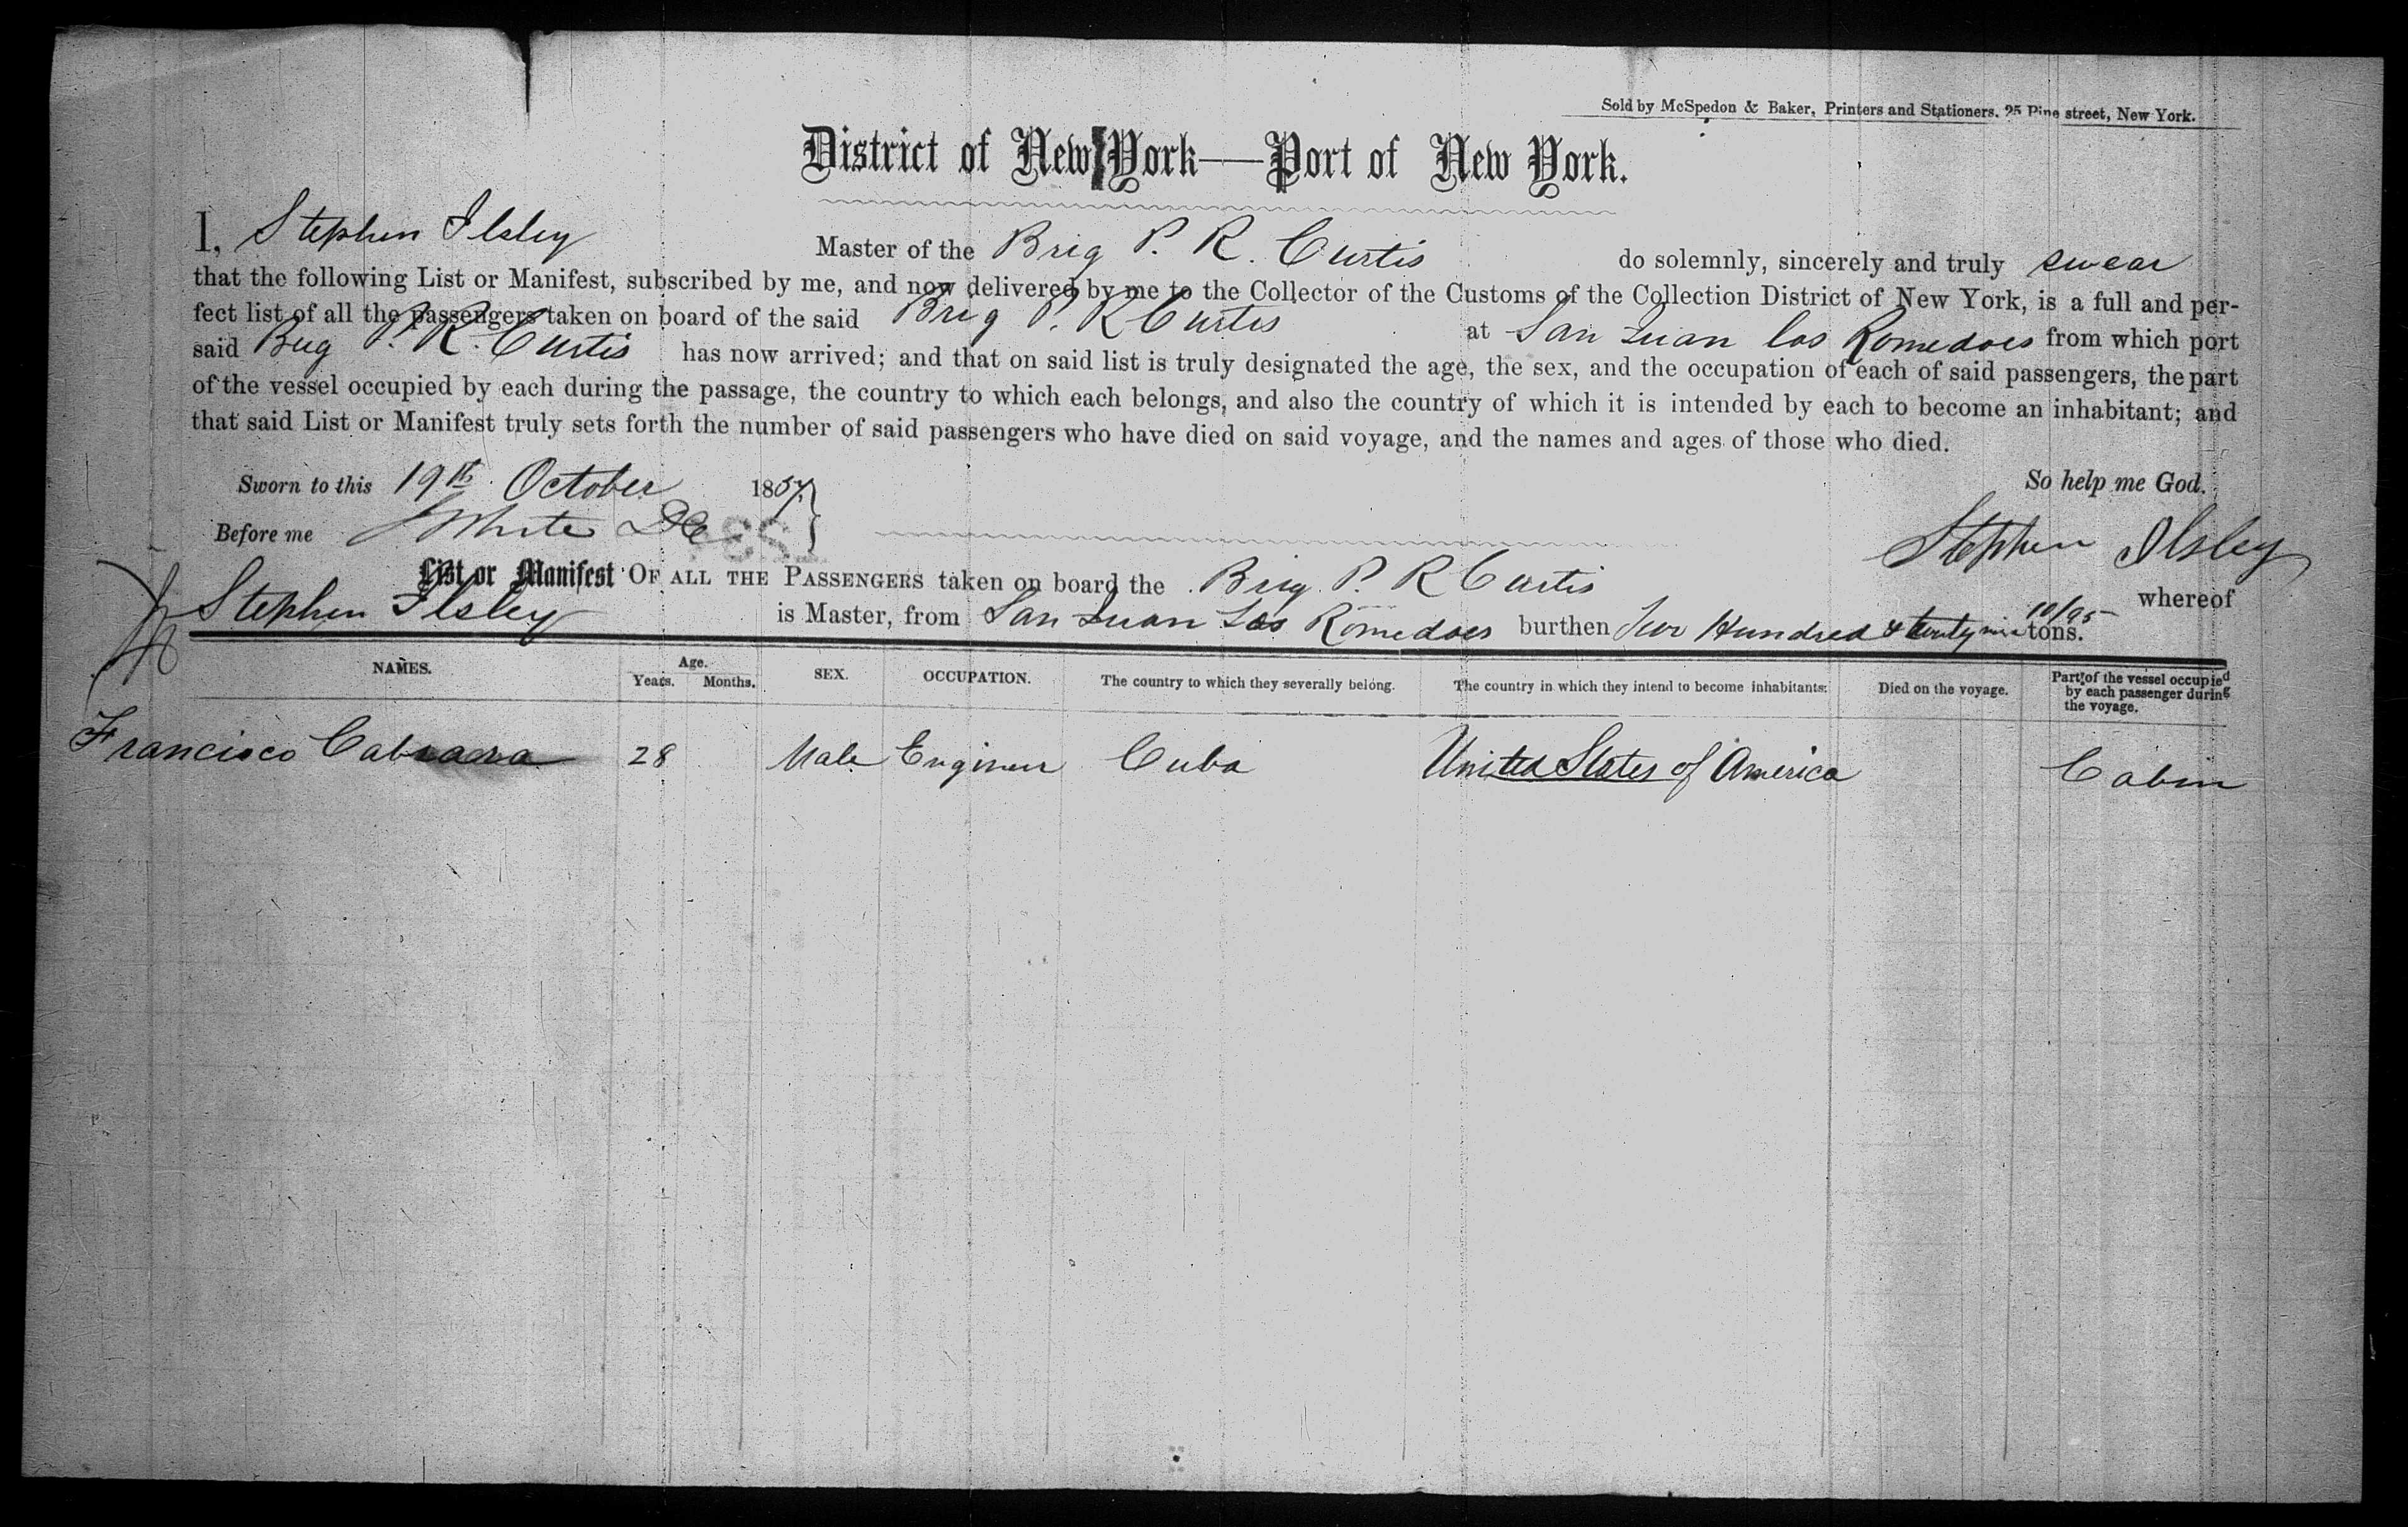 Sold by McSpedon & Baker, Printers and Stationers, 25 Pine street, New York.
District of New York—Port of New York.
I, Stephen Ilsley Master of the Brig P. R. Curtis do solemnly, sincerely and truly swear
that the following List or Manifest, subscribed by me, and now delivered by me to the Collector of the Customs of the Collection District of New York, is a full and per-
fect list of all the passengers taken on board of the said Brig P. R Curtis at San Juan los Romedoes from which port
said Brig P. R. Curtis has now arrived; and that on said list is truly designated the age, the sex, and the occupation of each of said passengers, the part
of the vessel occupied by each during the passage, the country to which each belongs, and also the country of which it is intended by each to become an inhabitant; and
that said List or Manifest truly sets forth the number of said passengers who have died on said voyage, and the names and ages of those who died.
Sworn to this 19th October 1857. So help me God.
Before me White Stephen Ilsley
List or Manifest OF ALL THE PASSENGERS taken on board the Brig P. R Curtis whereof
Stephen Ilsley is Master, from San Juan Los Romedoes burthen Two Hundred & twenty nine 10/95 tons.
NAMES. Age. Years. Months. SEX. OCCUPATION. The country to which they severally belong. The country in which they intend to become inhabitants. Died on the voyage. Part of the vessel occupied by each passenger during the voyage.
Francisco 28 Male Engineer Cuba United States of America Cabin